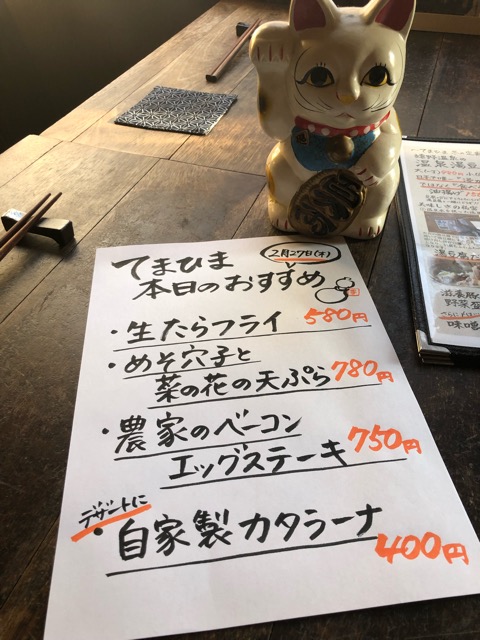 2月27日(木)
てまひま
本日のおすすめ
・生たらフライ 580円
・めそ穴子と
菜の花の天ぷら 780円
・農家のベーコン
エッグステーキ 750円
デザートに
・自家製カタラーナ
400円
温菜湯豆
油揚げ
滋養豚
野菜
味噌